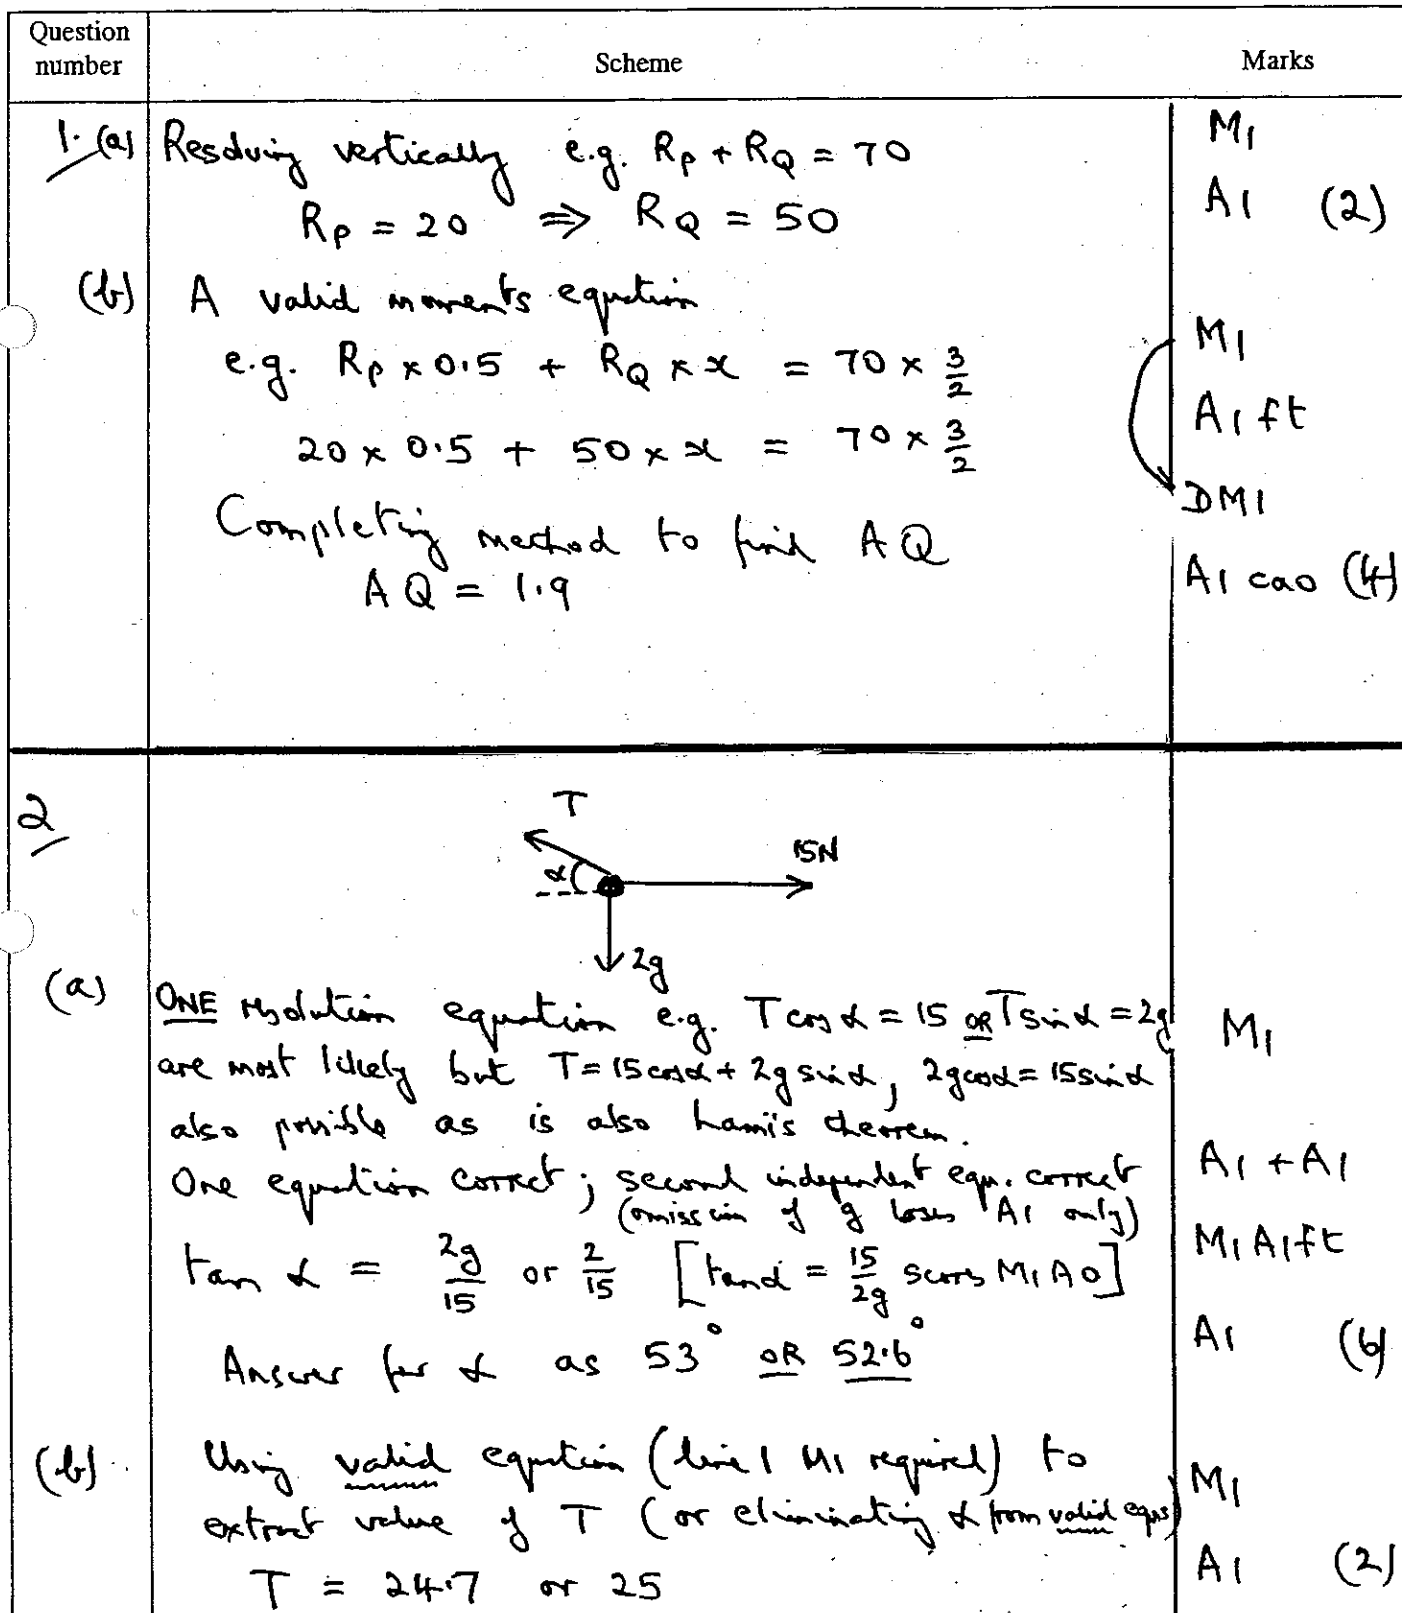 Question number Scheme Marks
1. (a) Resolving vertically e.g. R_P + R_Q = 70 M1
R_P = 20 ⇒ R_Q = 50 A1 (2)
(b) A valid moments equation
e.g. R_P × 0.5 + R_Q × x = 70 × 3/2 M1
20 × 0.5 + 50 × x = 70 × 3/2 A1 ft
Completing method to find AQ DM1
AQ = 1.9 A1 cao (4)
2
T
α
15N
2g
(a) ONE resolution equation e.g. T cos α = 15 OR T sin α = 2g M1
are most likely but T = 15 cos α + 2g sin α, 2g cos α = 15 sin α
also possible as is also Lami's theorem.
One equation correct; second independent eqn. correct A1 + A1
(omission of g loses A1 only)
tan α = 2g/15 or 2/15 [tan α = 15/2g scores M1 A0] M1 A1 ft
Answer for α as 53° OR 52.6° A1 (6)
(b) Using valid equation (line 1 M1 required) to
extract value of T (or eliminating α from valid eqns) M1
T = 24.7 or 25 A1 (2)